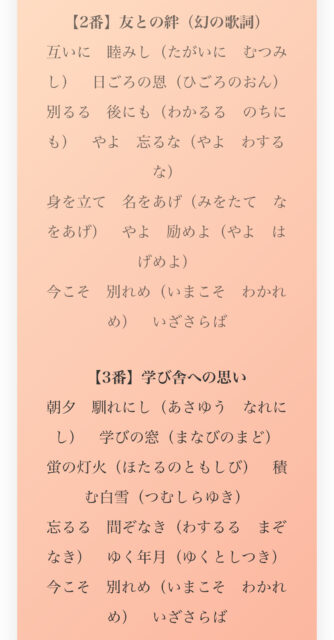 【2番】友との絆（幻の歌詞）
互いに　睦みし（たがいに　むつみ
し）　日ごろの恩（ひごろのおん）
別るる　後にも（わかるる　のちに
も）　やよ　忘るな（やよ　わする
な）
身を立て　名をあげ（みをたて　な
をあげ）　やよ　励めよ（やよ　は
げめよ）
今こそ　別れめ（いまこそ　わかれ
め）　いざさらば
【3番】学び舎への思い
朝夕　馴れにし（あさゆう　なれに
し）　学びの窓（まなびのまど）
蛍の灯火（ほたるのともしび）　積
む白雪（つむしらゆき）
忘るる　間ぞなき（わするる　まぞ
なき）　ゆく年月（ゆくとしつき）
今こそ　別れめ（いまこそ　わかれ
め）　いざさらば